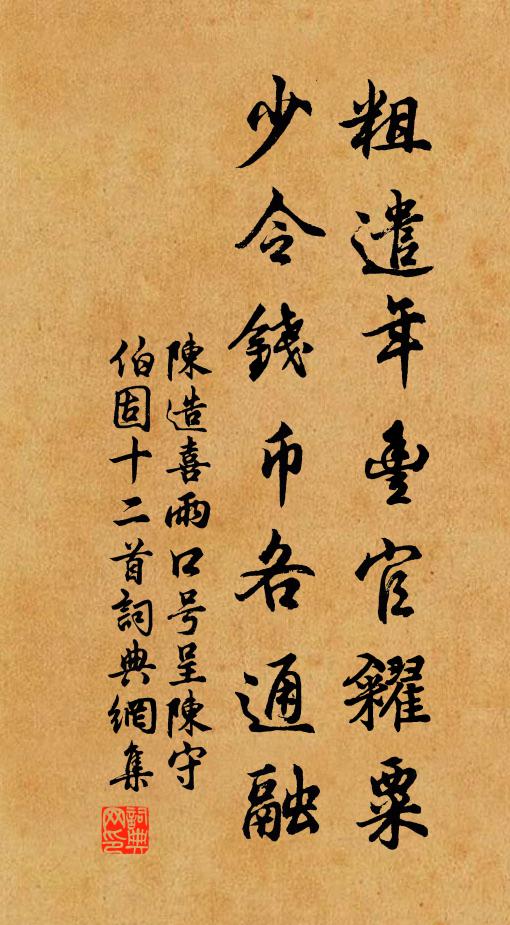 粗遣年豐官糴粟
少令錢币各通融
陳造喜雨口号呈陳守
伯固十二首詞典網集
詞典网印